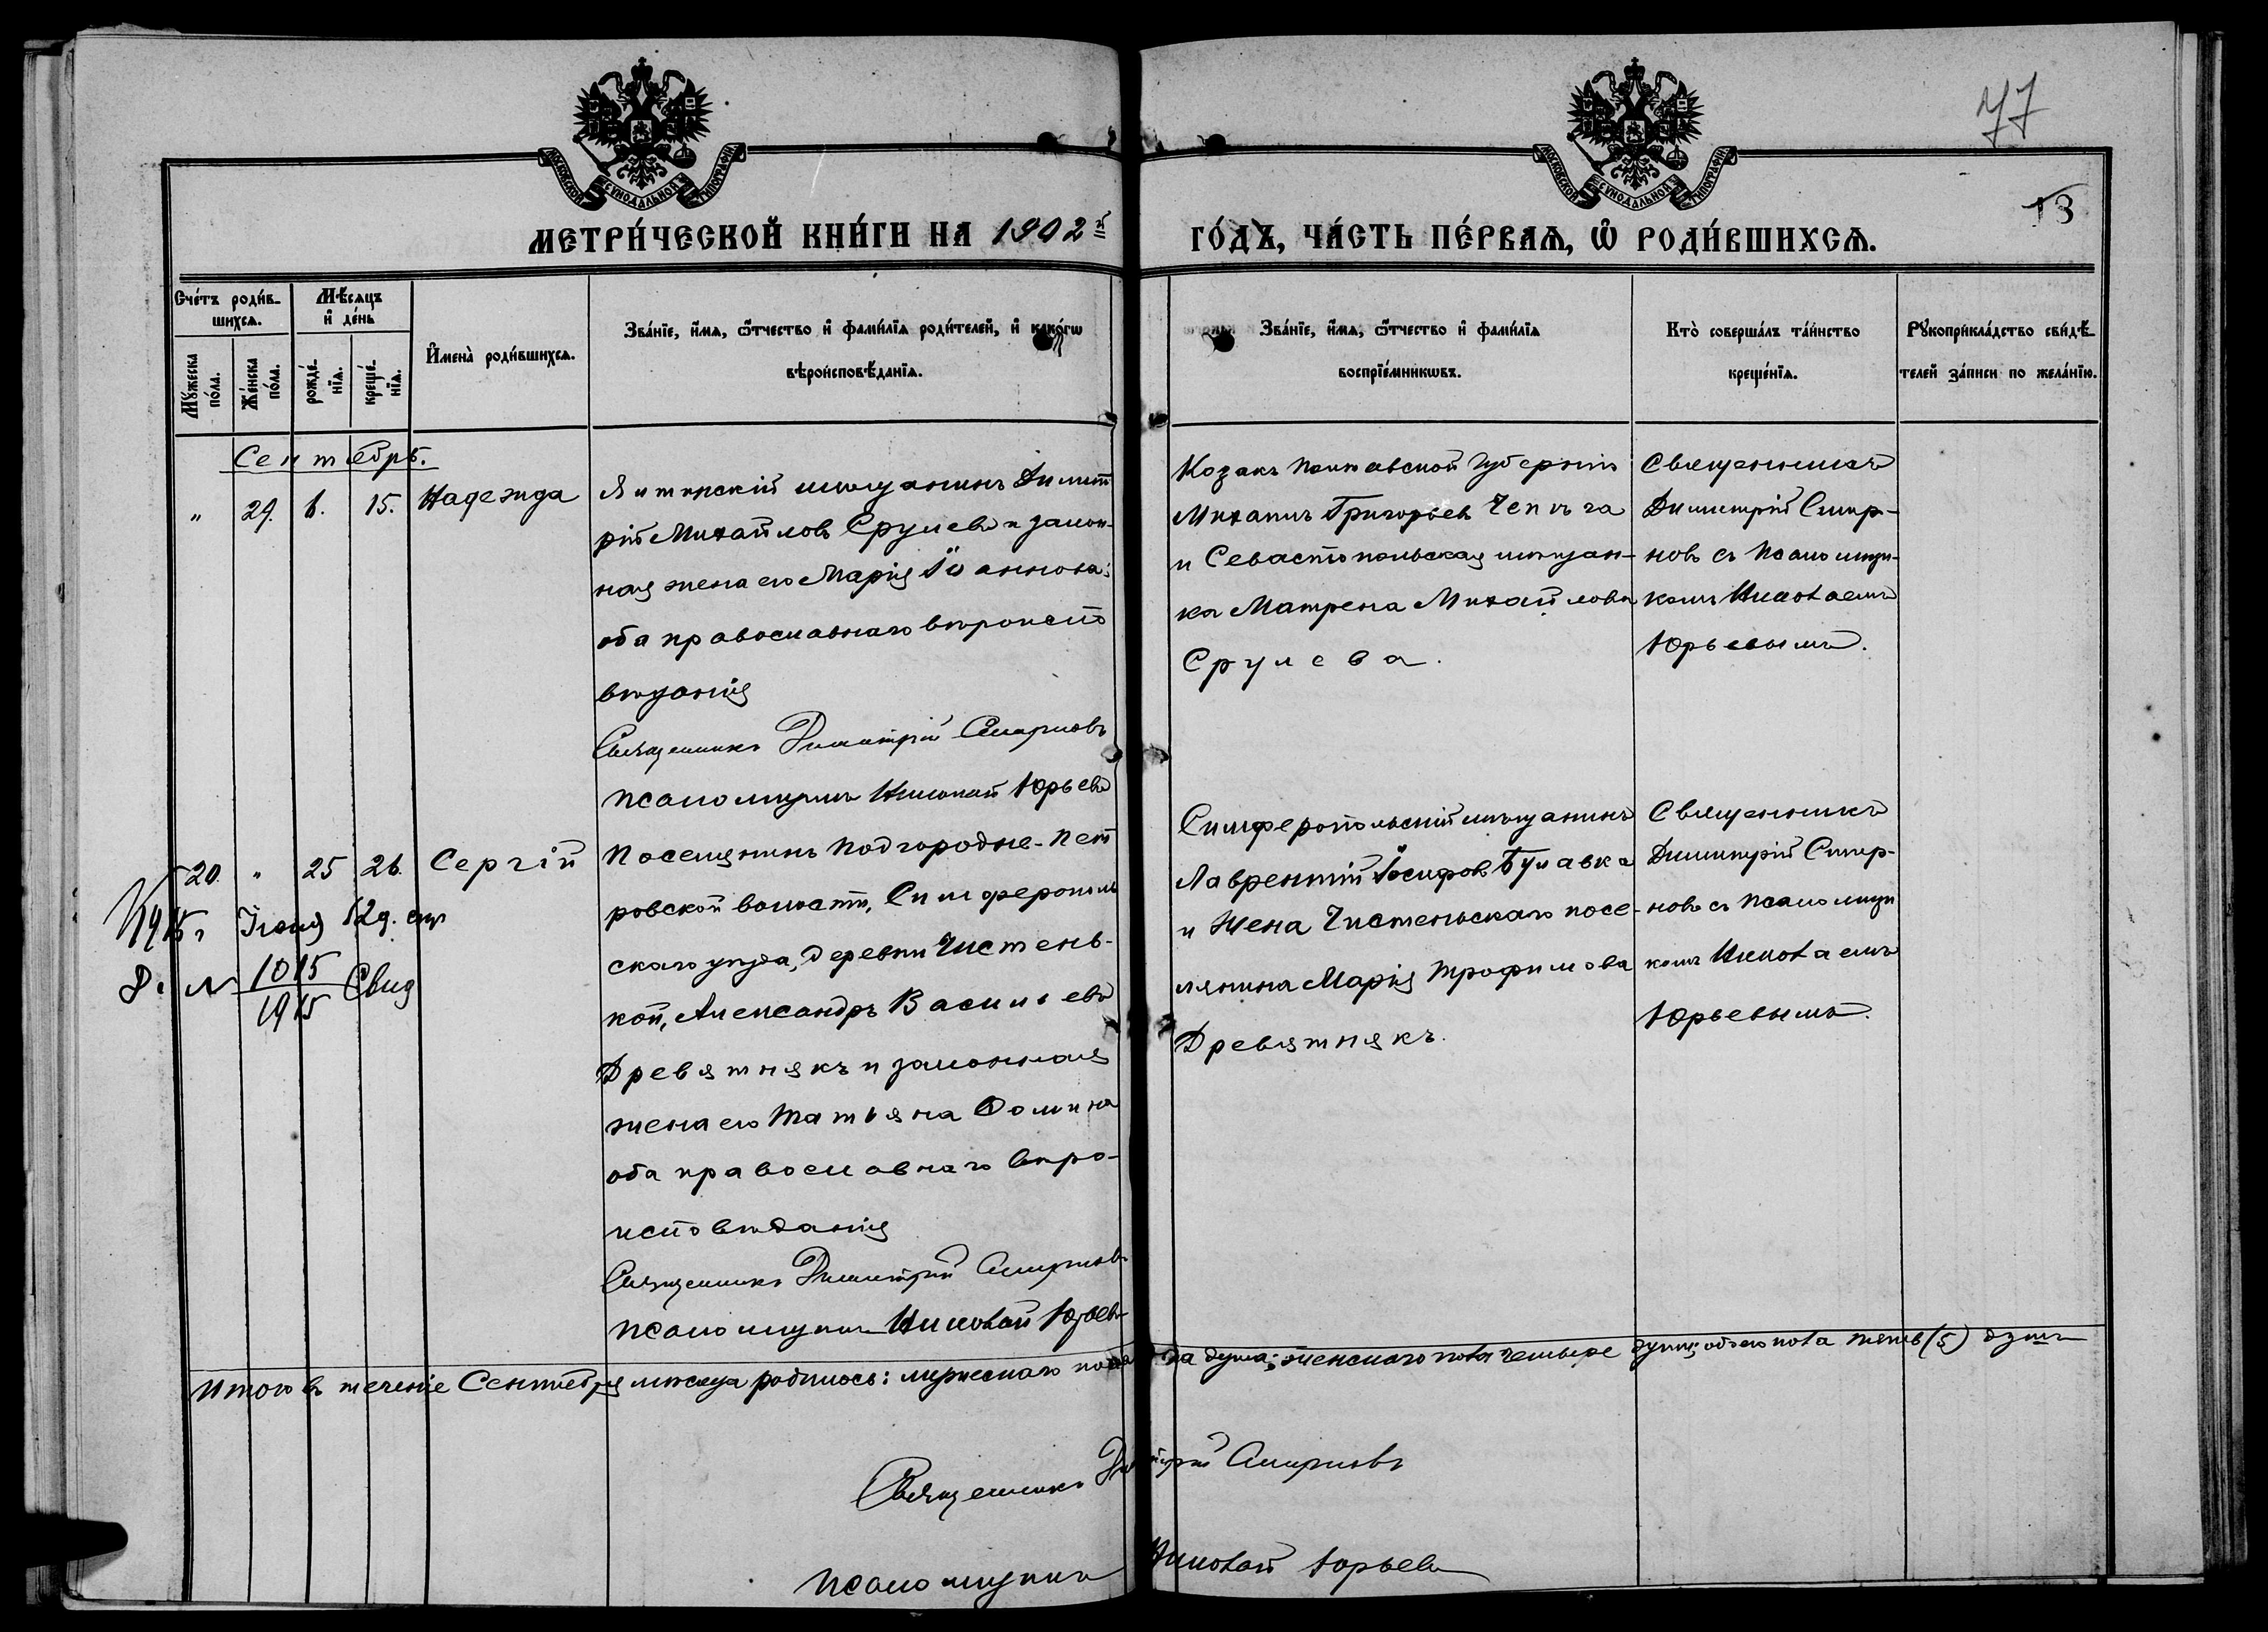 77
13
МОСКОВСКОЙ СѴНОДАЛЬНОЙ ТИПОГРАФІИ
МОСКОВСКОЙ СѴНОДАЛЬНОЙ ТИПОГРАФІИ
МЕТРИ́ЧЕСКОЙ КНИ́ГИ НА 1902й ГО́ДЪ, ЧА́СТЬ ПЕ́РВАѦ, Ѽ РОДИ́ВШИХСѦ.
Сче́тъ роди́вшихсѧ.
Мѣ́сѧцъ и҆ де́нь
Мꙋ́жеска по́ла.
Же́нска по́ла.
рожде́нїѧ.
креще́нїѧ.
И҆мена̀ роди́вшихсѧ.
Зва́нїе, и҆́мѧ, ѻ҆́тчество и҆ фами́лїѧ роди́телей, и҆ како́гѡ
вѣроисповѣ́данїѧ.
Зва́нїе, и҆́мѧ, ѻ҆́тчество и҆ фами́лїѧ
воспрїе́мникѡвъ.
Кто̀ соверша́лъ та́инство
креще́нїѧ.
Рꙋкоприкла́дство свидѣ́-
телей за́писи по жела́нїю.
Сентябрь.
" 29. 6. 15. Надежда
Ялтинскій мѣщанинъ Димит
рій Михайловъ Срулевъ и закон-
ная жена его Марія Іоаннова;
оба православнаго вѣроиспо
вѣданія
Священникъ Димитрій Смирновъ
Псаломщикъ Николай Юрьевъ
Козакъ Полтавской губерніи
Михаилъ Григорьевъ Чепига
и Севастопольская мѣщан-
ка Матрена Михайлова
Срулева.
Священникъ
Димитрій Смир-
новъ съ Псаломщи-
комъ Николаемъ
Юрьевымъ.
20. " 25 26. Сергій
1915 г Іюня 12 д.
№ 1015
1915 Свид
Поселянинъ Подгородне-Пет
ровской волости, Симферополь
скаго уѣзда, деревни Чистень-
кой, Александръ Васильевъ
Древятнякъ и законная
жена его Татьяна Ѳомина
оба православнаго вѣро-
исповѣданія
Священникъ Димитрій Смирновъ
Псаломщикъ Николай Юрьевъ
Симферопольскій мѣщанинъ
Лаврентій Іосифовъ Булавка
и Жена Чистеньскаго посе-
лянина Марія Трофимова
Древятнякъ.
Священникъ
Димитрій Смир-
новъ съ Псаломщи
комъ Николаемъ
Юрьевымъ.
Итого въ теченіе Сентября мѣсяца родилось: мужескаго пола душа; женскаго пола четыре души; обоего пола пять (5) душъ
Священникъ Димитрій Смирновъ
Псаломщикъ Николай Юрьевъ